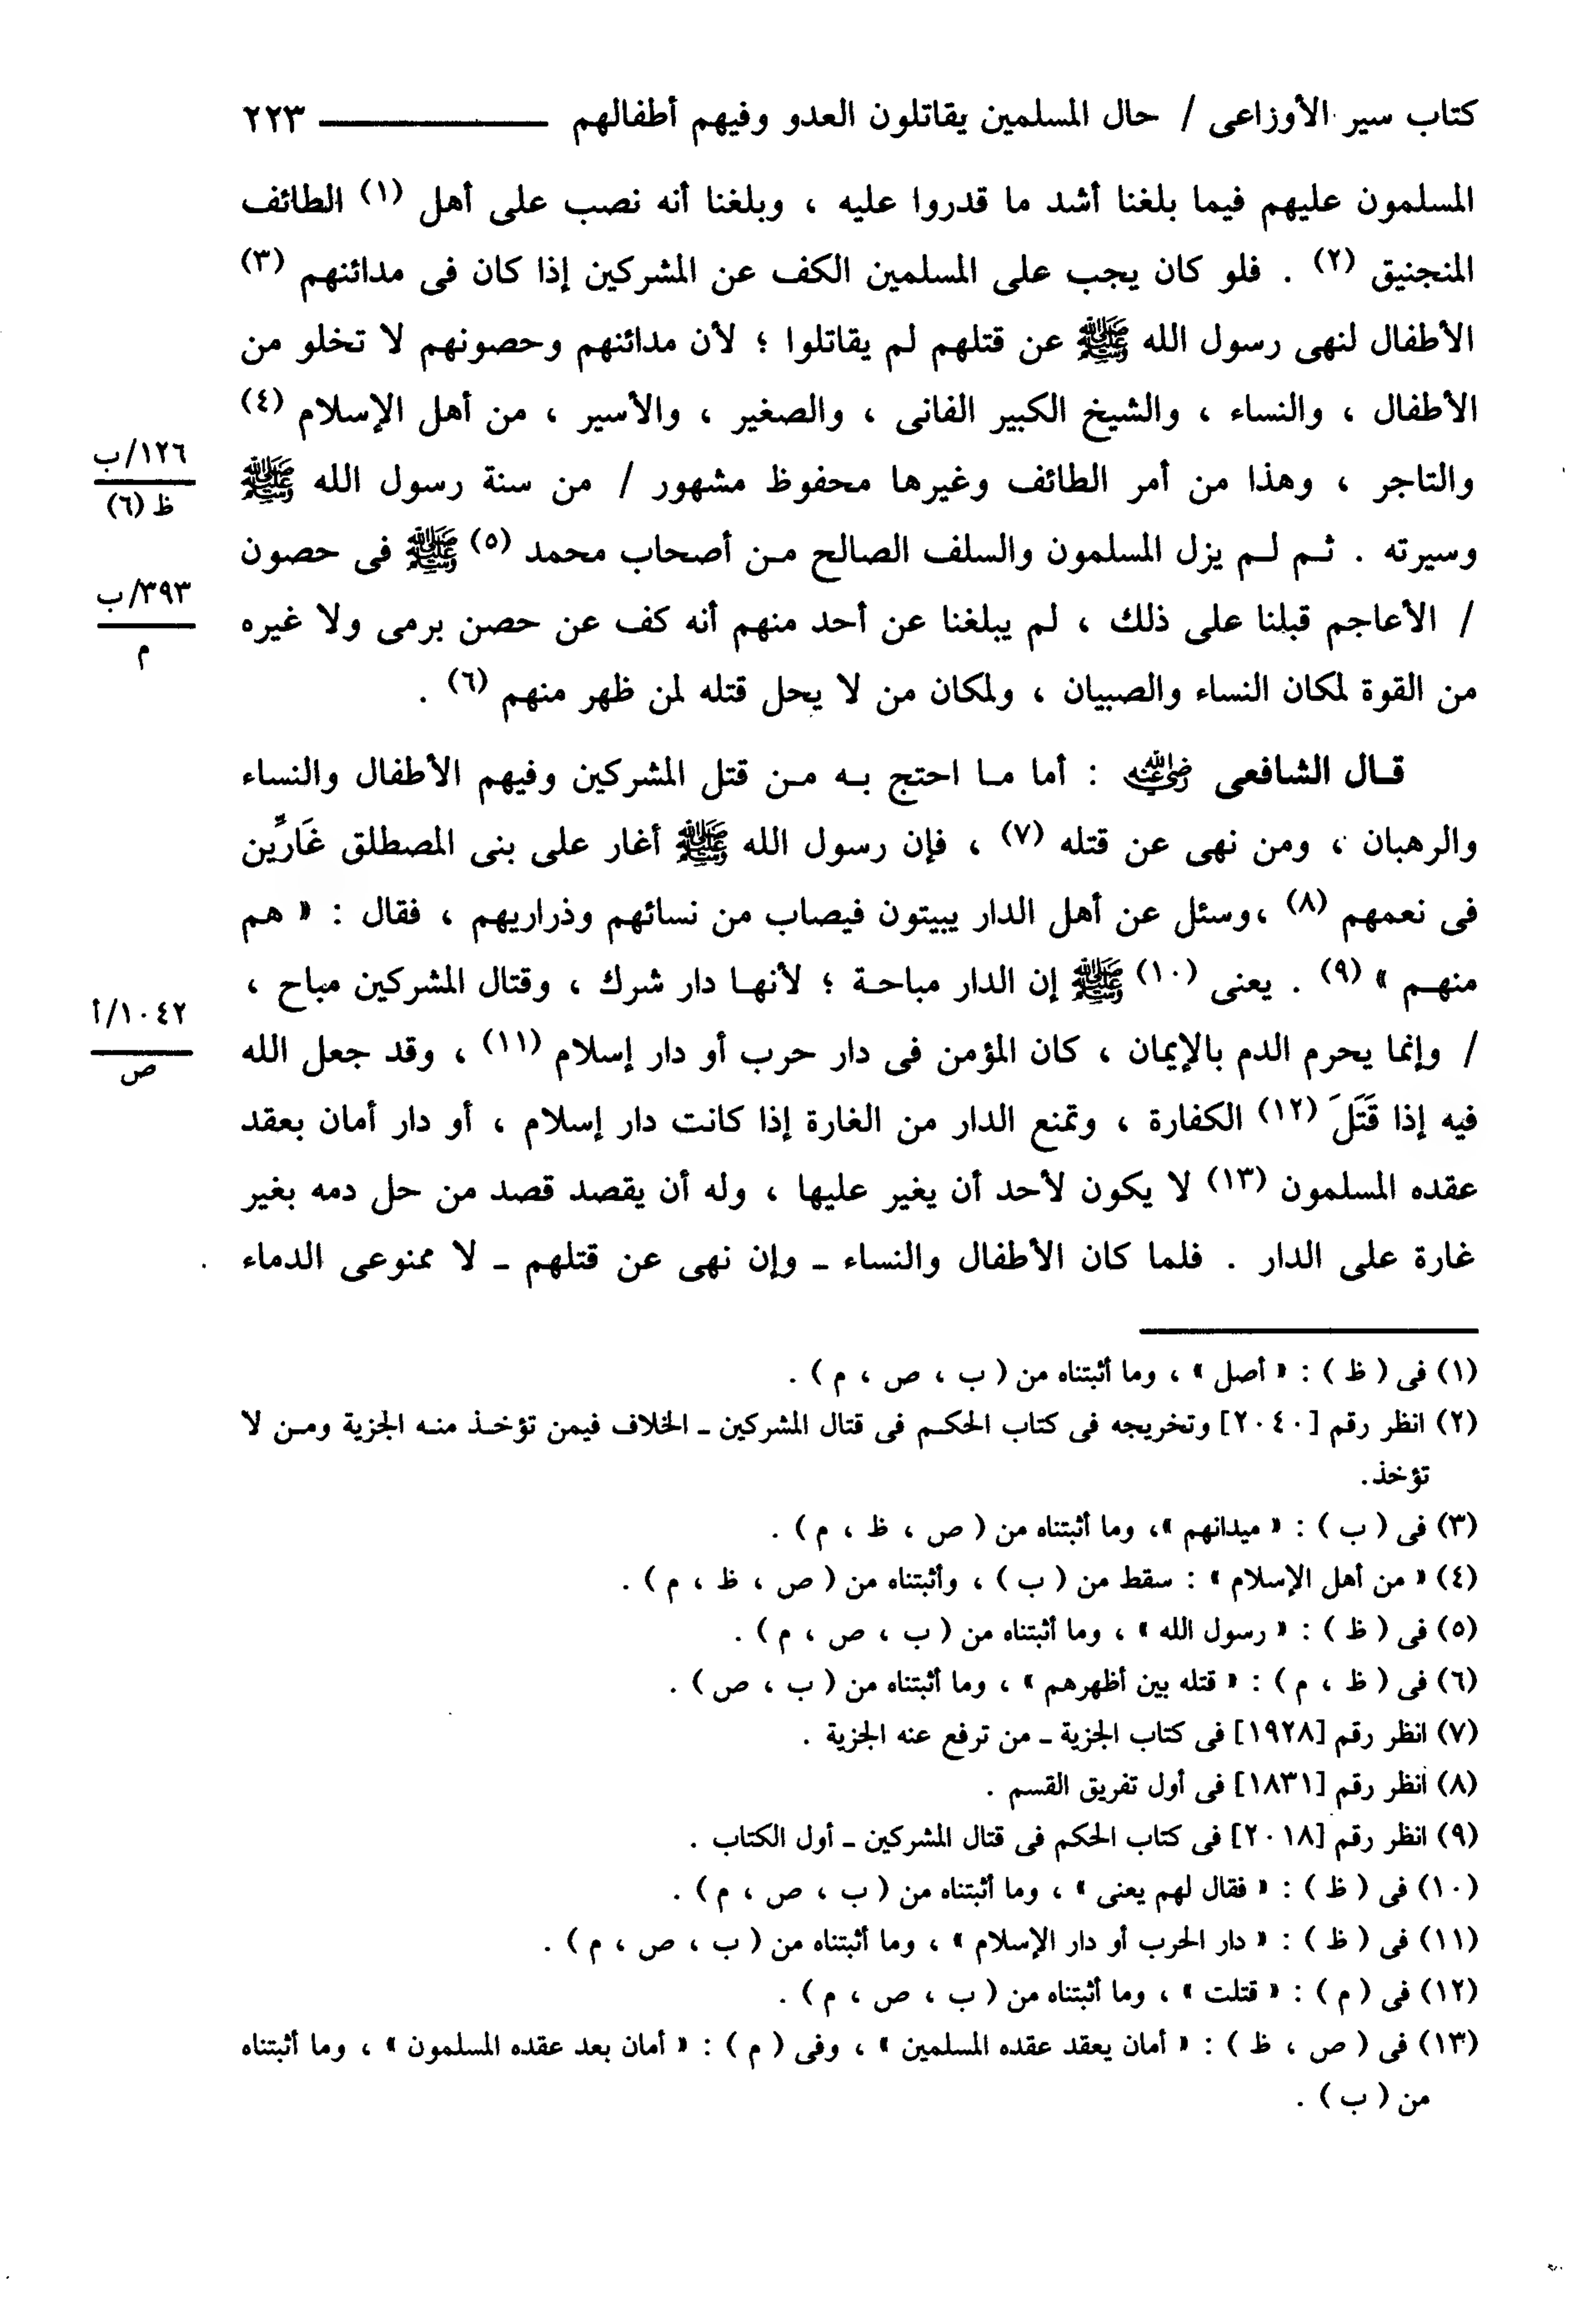 كتاب سير الأوزاعى / حال المسلمين يقاتلون العدو وفيهم أطفالهم ـــــــــــ ٢٢٣
المسلمون عليهم فيما بلغنا أشد ما قدروا عليه ، وبلغنا أنه نصب على أهل (١) الطائف
المنجنيق (٢) . فلو كان يجب على المسلمين الكف عن المشركين إذا كان فى مدائنهم (٣)
الأطفال لنهى رسول الله ﷺ عن قتلهم لم يقاتلوا ؛ لأن مدائنهم وحصونهم لا تخلو من
الأطفال ، والنساء ، والشيخ الكبير الفانى ، والصغير ، والأسير ، من أهل الإسلام (٤)
١٢٦/ب
ظ (٦)
والتاجر ، وهذا من أمر الطائف وغيرها محفوظ مشهور / من سنة رسول الله ﷺ
وسيرته . ثـم لـم يزل المسلمون والسلف الصالح مـن أصحاب محمد (٥) ﷺ فى حصون
٣٩٣/ب
م
/ الأعاجم قبلنا على ذلك ، لم يبلغنا عن أحد منهم أنه كف عن حصن برمى ولا غيره
من القوة لمكان النساء والصبيان ، ولمكان من لا يحل قتله لمن ظهر منهم (٦) .
قـال الشافعى رضي الله عنه : أما مـا احتج بـه مـن قتل المشركين وفيهم الأطفال والنساء
والرهبان ، ومن نهى عن قتله (٧) ، فإن رسول الله ﷺ أغار على بنى المصطلق غَارِّين
فى نعمهم (٨) ،وسئل عن أهل الدار يبيتون فيصاب من نسائهم وذراريهم ، فقال : « هم
منهـم » (٩) . يعنى (١٠) ﷺ إن الدار مباحـة ؛ لأنهـا دار شرك ، وقتال المشركين مباح ،
١٠٤٢/أ
ص
/ وإنما يحرم الدم بالإيمان ، كان المؤمن فى دار حرب أو دار إسلام (١١) ، وقد جعل الله
فيه إذا قَتَلَ (١٢) الكفارة ، وتمنع الدار من الغارة إذا كانت دار إسلام ، أو دار أمان بعقد
عقده المسلمون (١٣) لا يكون لأحد أن يغير عليها ، وله أن يقصد قصد من حل دمه بغير
غارة على الدار . فلما كان الأطفال والنساء ـ وإن نهى عن قتلهم ـ لا ممنوعى الدماء
(١) فى ( ظ ) : « أصل » ، وما أثبتناه من ( ب ، ص ، م ) .
(٢) انظر رقم [٢٠٤٠] وتخريجه فى كتاب الحكـم فى قتال المشركين ـ الخلاف فيمن تؤخـذ منـه الجزية ومـن لا
تؤخذ.
(٣) فى ( ب ) : « ميدانهم »، وما أثبتناه من ( ص ، ظ ، م ) .
(٤) « من أهل الإسلام » : سقط من ( ب ) ، وأثبتناه من ( ص ، ظ ، م ) .
(٥) فى ( ظ ) : « رسول الله » ، وما أثبتناه من ( ب ، ص ، م ) .
(٦) فى ( ظ ، م ) : « قتله بين أظهرهم » ، وما أثبتناه من ( ب ، ص ) .
(٧) انظر رقم [١٩٢٨] فى كتاب الجزية ـ من ترفع عنه الجزية .
(٨) انظر رقم [١٨٣١] فى أول تفريق القسم .
(٩) انظر رقم [٢٠١٨] فى كتاب الحكم فى قتال المشركين ـ أول الكتاب .
(١٠) فى ( ظ ) : « فقال لهم يعنى » ، وما أثبتناه من ( ب ، ص ، م ) .
(١١) فى ( ظ ) : « دار الحرب أو دار الإسلام » ، وما أثبتناه من ( ب ، ص ، م ) .
(١٢) فى ( م ) : « قتلت » ، وما أثبتناه من ( ب ، ص ، م ) .
(١٣) فى ( ص ، ظ ) : « أمان يعقد عقده المسلمين » ، وفى ( م ) : « أمان بعد عقده المسلمون » ، وما أثبتناه
من ( ب ) .